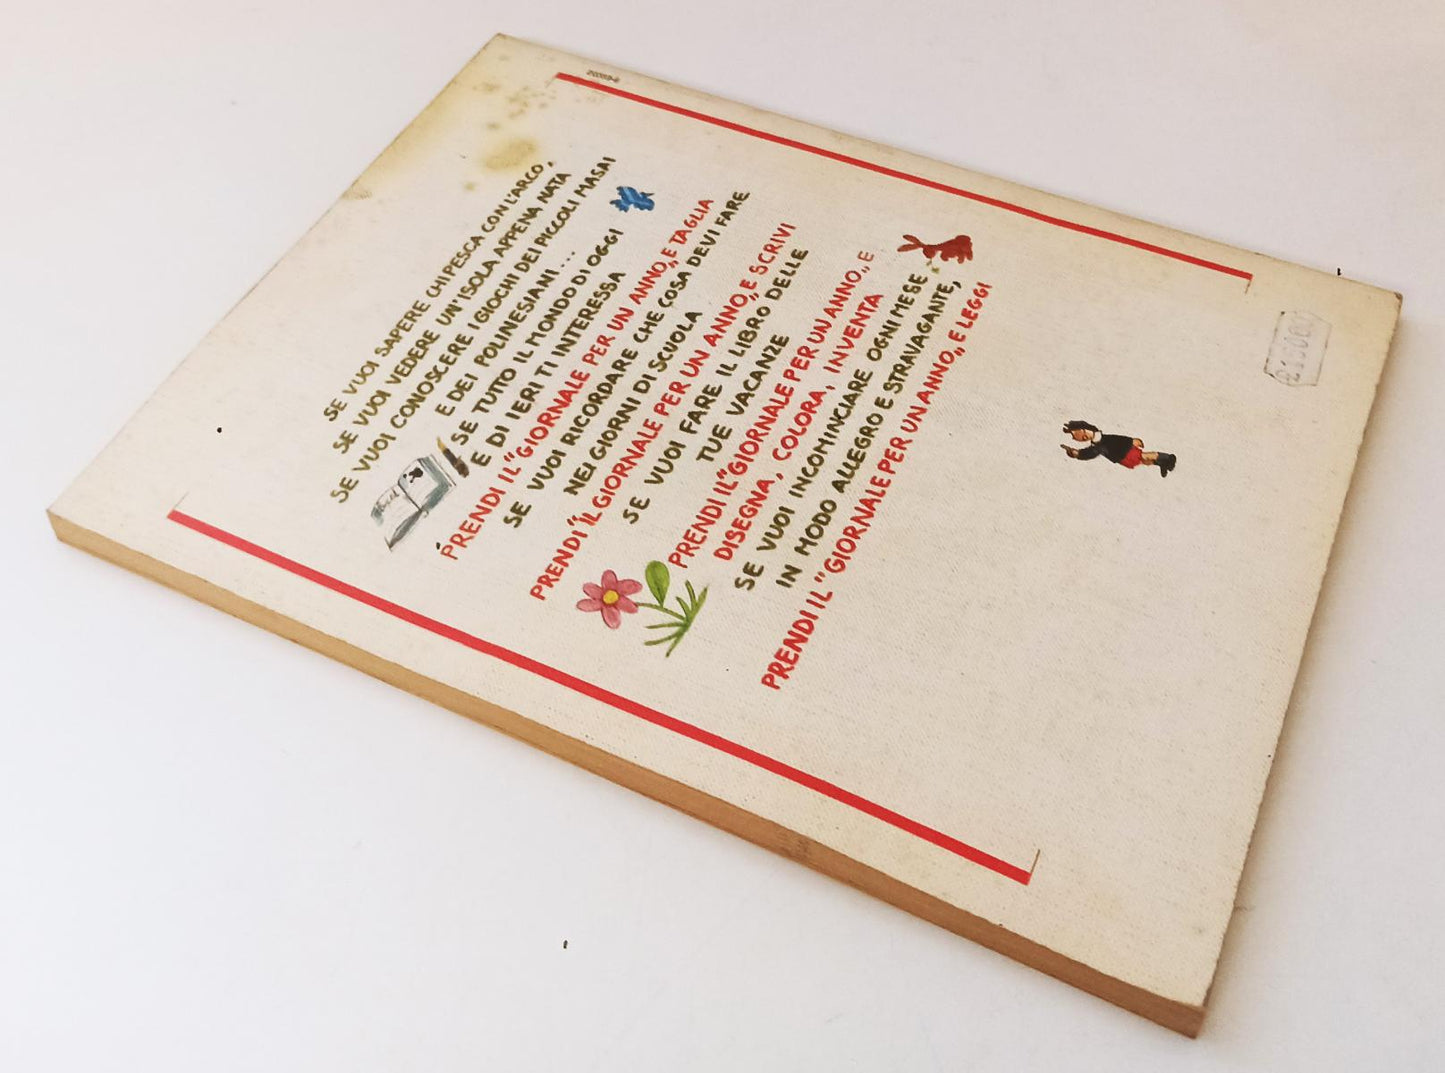 SE VUOI SAPERE CHI PESCA CON L'ARCO,
SE VUOI VEDERE UN'ISOLA APPENA NATA
SE VUOI CONOSCERE I GIOCHI DEI PICCOLI MASAI
E DEI POLINESIANI...
SE TUTTO IL MONDO DI OGGI
E DI IERI TI INTERESSA
PRENDI IL "GIORNALE PER UN ANNO,, E TAGLIA
SE VUOI RICORDARE CHE COSA DEVI FARE
NEI GIORNI DI SCUOLA
PRENDI "IL GIORNALE PER UN ANNO,, E SCRIVI
SE VUOI FARE IL LIBRO DELLE
TUE VACANZE
PRENDI IL "GIORNALE PER UN ANNO,, E
DISEGNA, COLORA, INVENTA
SE VUOI INCOMINCIARE OGNI MESE
IN MODO ALLEGRO E STRAVAGANTE,
PRENDI IL "GIORNALE PER UN ANNO,, E LEGGI